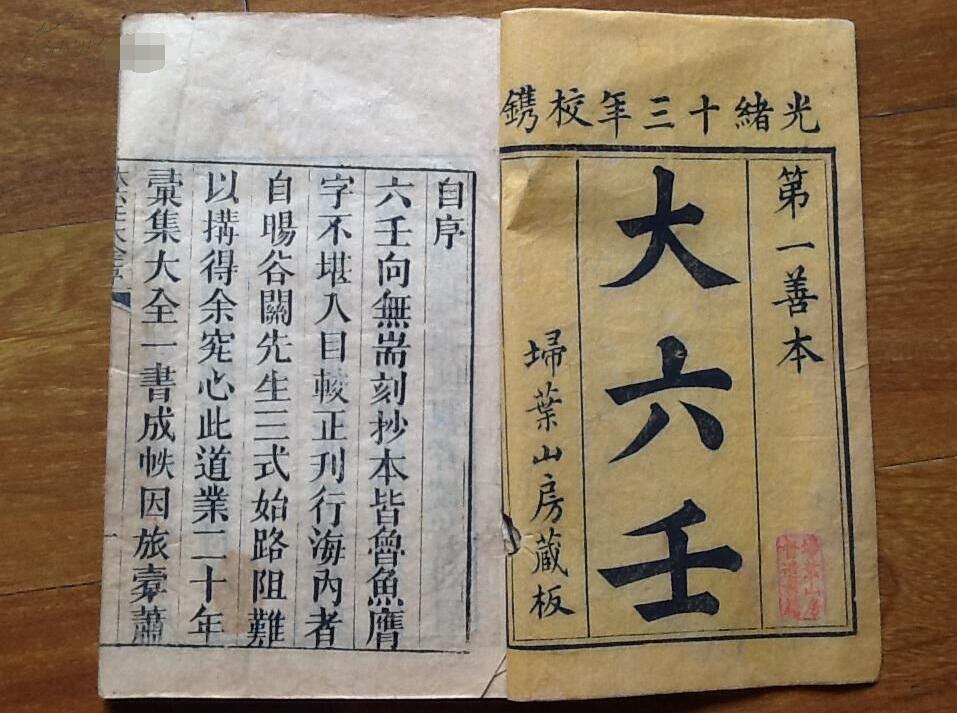 光緒十三年校鐫
第一善本
大六壬
埽葉山房藏板
自序
六壬向無耑刻抄本皆魯魚膺
字不堪入目較正刋行海內者
自暘谷關先生三式始路阻難
以搆得余究心此道業二十年
彚集大全一書成帙因旅橐蕭